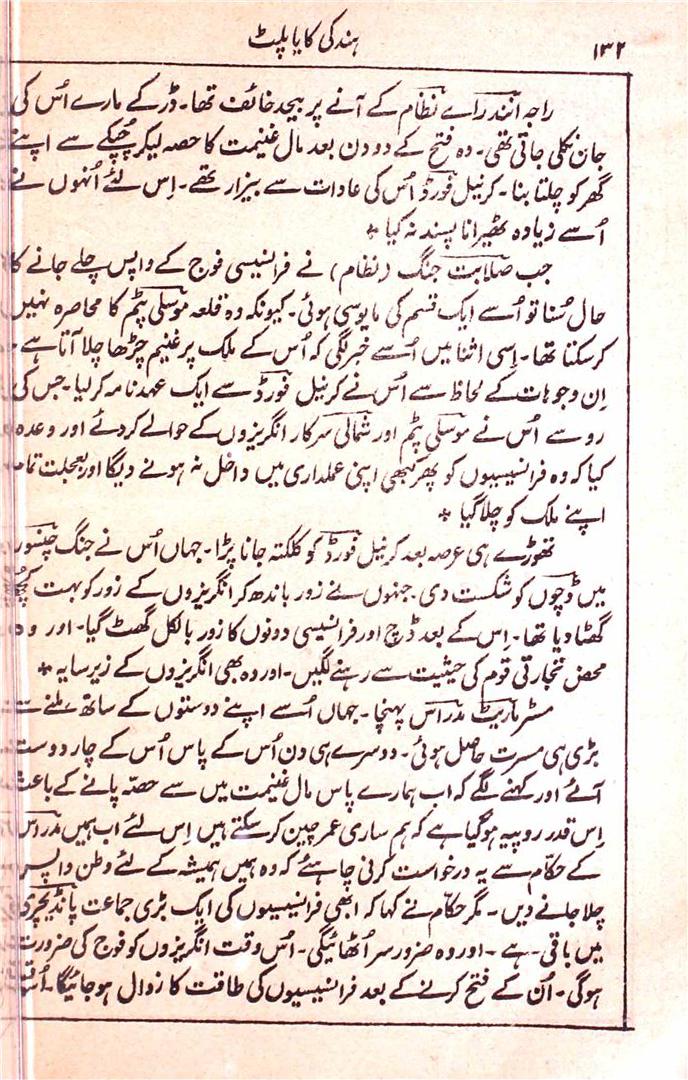 ۱۳۲
ہند کی کایا پلٹ
راجہ انندراے نظام کے آنے پر بیحد خائف تھا۔ ڈر کے مارے اُس کی
جان نکلی جاتی تھی۔ وہ فتح کے دو دن بعد مال غنیمت کا حصہ لیکر چُپکے سے اپنے
گھر کو چلتا بنا۔ کرنیل فورڈ اُس کی عادات سے بیزار تھے۔ اِس لئے اُنہوں نے
اُسے زیادہ ٹھیرانا پسند نہ کیا *
جب صلابت جنگ (نظام) نے فرانسیسی فوج کے واپس چلے جانے کا
حال سُنا تو اُسے ایک قسم کی مایوسی ہوئی۔ کیونکہ وہ قلعہ موسلی پٹم کا محاصرہ نہیں
کر سکتا تھا۔ اِسی اثنا میں اُسے خبر لگی کہ اُس کے ملک پر غنیم چڑھا چلا آتا ہے
اِن وجوہات کے لحاظ سے اُس نے کرنیل فورڈ سے ایک عہدنامہ کر لیا۔ جس کی
رو سے اُس نے موسلی پٹم اور شمالی سرکار انگریزوں کے حوالے کر دئے اور وعدہ
کیا کہ وہ فرانسیسیوں کو پھر کبھی اپنی عملداری میں داخل نہ ہونے دیگا اور بعجلت تمام
اپنے ملک کو چلا گیا *
تھوڑے ہی عرصہ بعد کرنیل فورڈ کو کلکتہ جانا پڑا۔ جہاں اُس نے جنگ
میں ڈچوں کو شکست دی۔ جنہوں نے زور باندھ کر انگریزوں کے زور کو بہت کچھ
گھٹا دیا تھا۔ اِس کے بعد ڈچ اور فرانسیسی دونوں کا زور بالکل گھٹ گیا۔ اور وہ
محض تجارتی قوم کی حیثیت سے رہنے لگیں۔ اور وہ بھی انگریزوں کے زیر سایہ *
مسٹر ماریٹ مدراس پہنچا۔ جہاں اُسے اپنے دوستوں کے ساتھ ملنے سے
بڑی ہی مسرت حاصل ہوئی۔ دوسرے ہی دن اُس کے پاس اُس کے چار دوست
آئے اور کہنے لگے کہ اب ہمارے پاس مال غنیمت میں سے حصّہ پانے کے باعث
اِس قدر روپیہ ہو گیا ہے کہ ہم ساری عمر چین کر سکتے ہیں اِس لئے اب ہمیں مدراس
کے حکام سے یہ درخواست کرنی چاہئے کہ وہ ہمیں ہمیشہ کے لئے وطن واپس
چلا جانے دیں۔ مگر حکام نے کہا کہ ابھی فرانسیسیوں کی ایک بڑی جماعت پانڈیچری
میں باقی۔ ہے۔ اور وہ ضرور سر اُٹھائیگی۔ اُس وقت انگریزوں کو فوج کی ضرورت
ہوگی۔ اُن کے فتح کرنے کے بعد فرانسیسیوں کی طاقت کا زوال ہو جائیگا۔